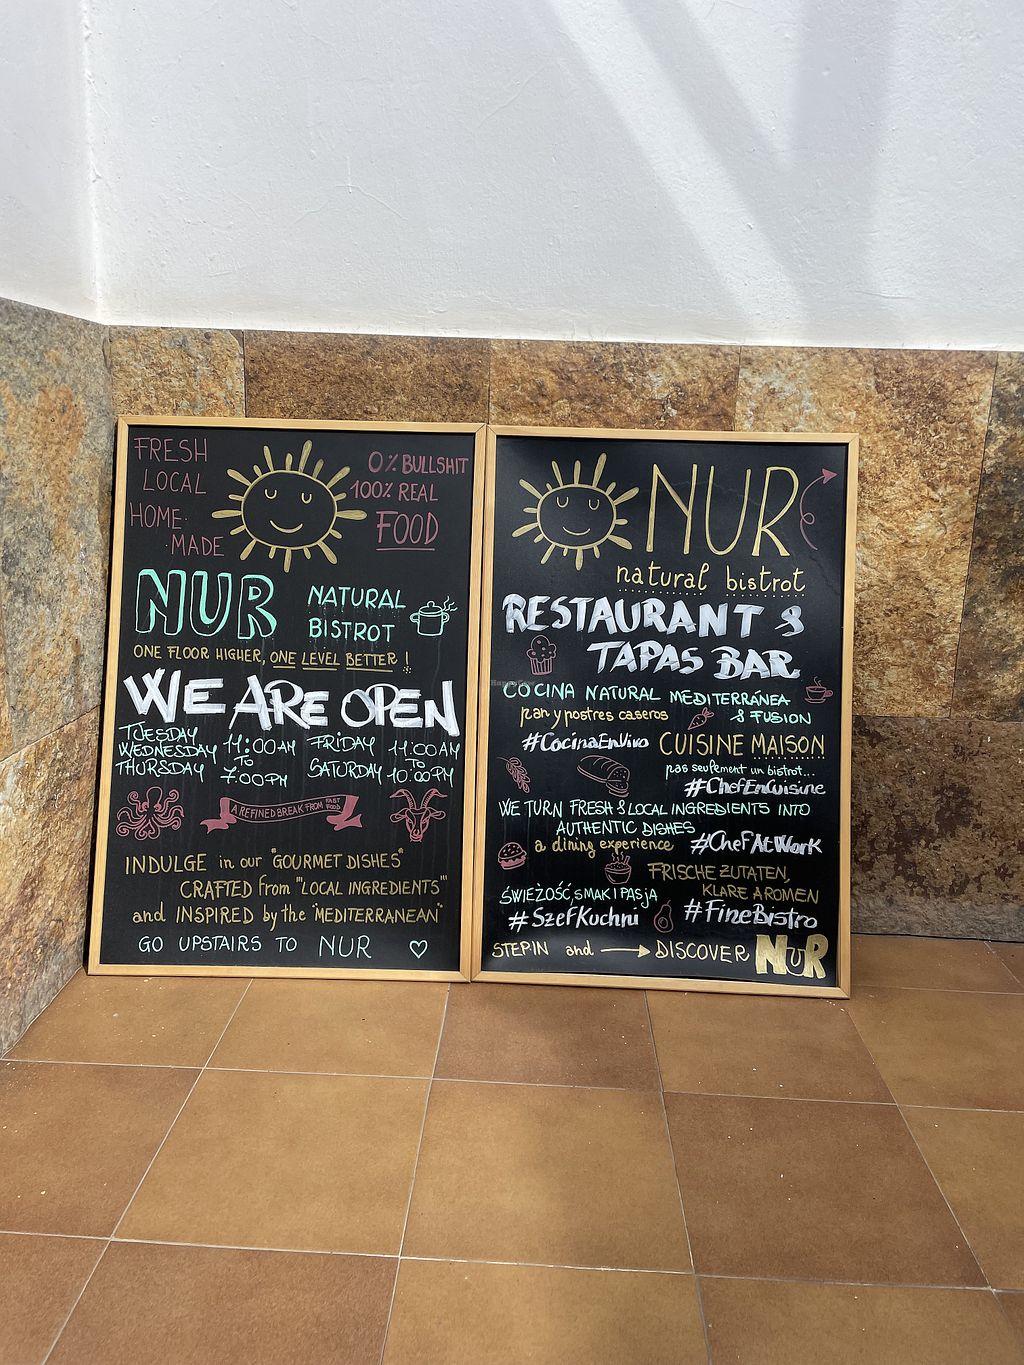 FRESH
LOCAL
HOME-
MADE
0% BULLSHIT
100% REAL
FOOD
NUR
NATURAL
BISTROT
ONE FLOOR HIGHER, ONE LEVEL BETTER!
WE ARE OPEN
TUESDAY
WEDNESDAY
THURSDAY
11:00 AM
TO
7:00 PM
FRIDAY
SATURDAY
11:00 AM
TO
10:00 PM
A REFINED BREAK FROM FAST FOOD
INDULGE in our "GOURMET DISHES"
CRAFTED from "LOCAL INGREDIENTS"
and INSPIRED by the "MEDITERRANEAN"
GO UPSTAIRS TO NUR
NUR
natural bistrot
RESTAURANT &
TAPAS BAR
HappyCow
COCINA NATURAL MEDITERRÁNEA
& FUSION
pan y postres caseros
#CocinaEnVivo
CUISINE MAISON
pas seulement un bistrot...
#ChefEnCuisine
WE TURN FRESH & LOCAL INGREDIENTS INTO
AUTHENTIC DISHES
a dining experience
#ChefAtWork
FRISCHE ZUTATEN,
KLARE AROMEN
#FineBistro
ŚWIEŻOŚĆ, SMAK I PASJA
#SzefKuchni
STEP IN and DISCOVER NUR